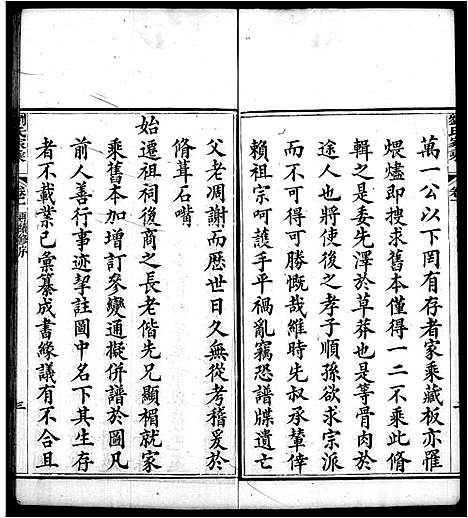 萬一公以下罔有存者家乘藏板亦罹
煨燼即搜求舊本僅得一二不乘此脩
輯之是委先澤於草莽也是等骨肉於
途人也將使後之孝子順孫欲求宗派
而不可勝慨哉維時先叔承輦倖
賴祖宗呵護手平禍亂竊恐譜牒遺亡
父老凋謝而歷世日久無從考稽爰於
脩葺石嘴
始遷祖祠後商之長老偕先兄顯楣就家
乘舊本加增訂參變通擬併譜於圖凡
前人善行事迹挈註圖中名下其生存
者不載業已彙纂成書緣議有不合且
劉氏家乘
卷一
三